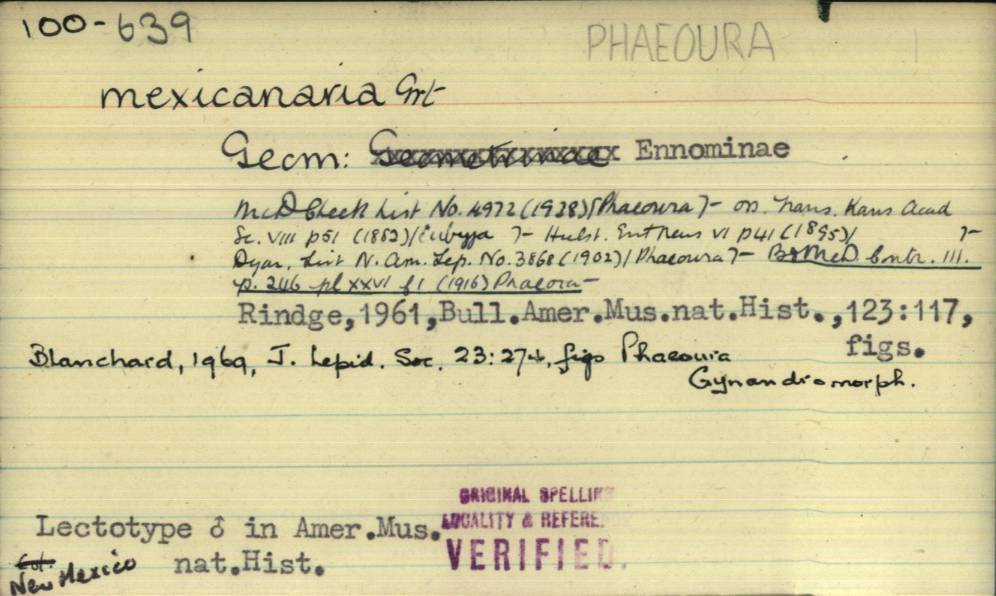 100-639
PHAEOURA
mexicanaria Grt
Geom: Geometrinae Ennominae
McD Check List No. 4972 (1938) / Phaeoura 7- on. Trans. Kans Acad
Sc. VIII p51 (1882) / Eubyja 7- Hulst. Ent News VI p41 (1895) / 7-
Dyar, List N. Am. Lep. No. 3868 (1902) / Phaeoura 7- B & McD. Contr. III.
p. 246 pl XXVI f 1 (1916) Phaeora-
Rindge,1961,Bull.Amer.Mus.nat.Hist.,123:117,
figs.
Blanchard, 1969, J. Lepid. Soc. 23:274, figs Phaeouia
Gynandromorph.
ORIGINAL SPELLIN
LOCALITY & REFERE
VERIFIED.
Lectotype ♂ in Amer.Mus.
nat.Hist.
New Mexico